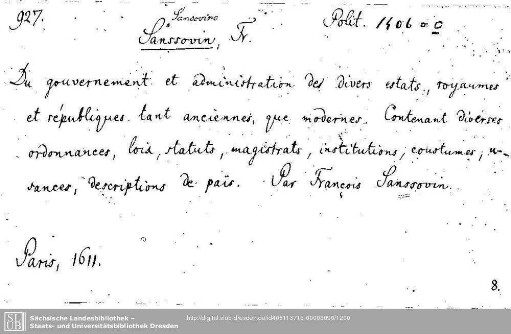 927.
Sansovino
Polit. 1406 a c
Sanssovin, Fr.
Du gouvernement et administration des divers estats, royaumes
et républiques tant anciennes, que modernes. Contenant diverses
ordonnances, loix, statuts, magistrats, institutions, coustumes, u-
sances, descriptions de païs. Par François Sanssovin.
Paris, 1611.
8.
SLUB
Sächsische Landesbibliothek –
Staats- und Universitätsbibliothek Dresden